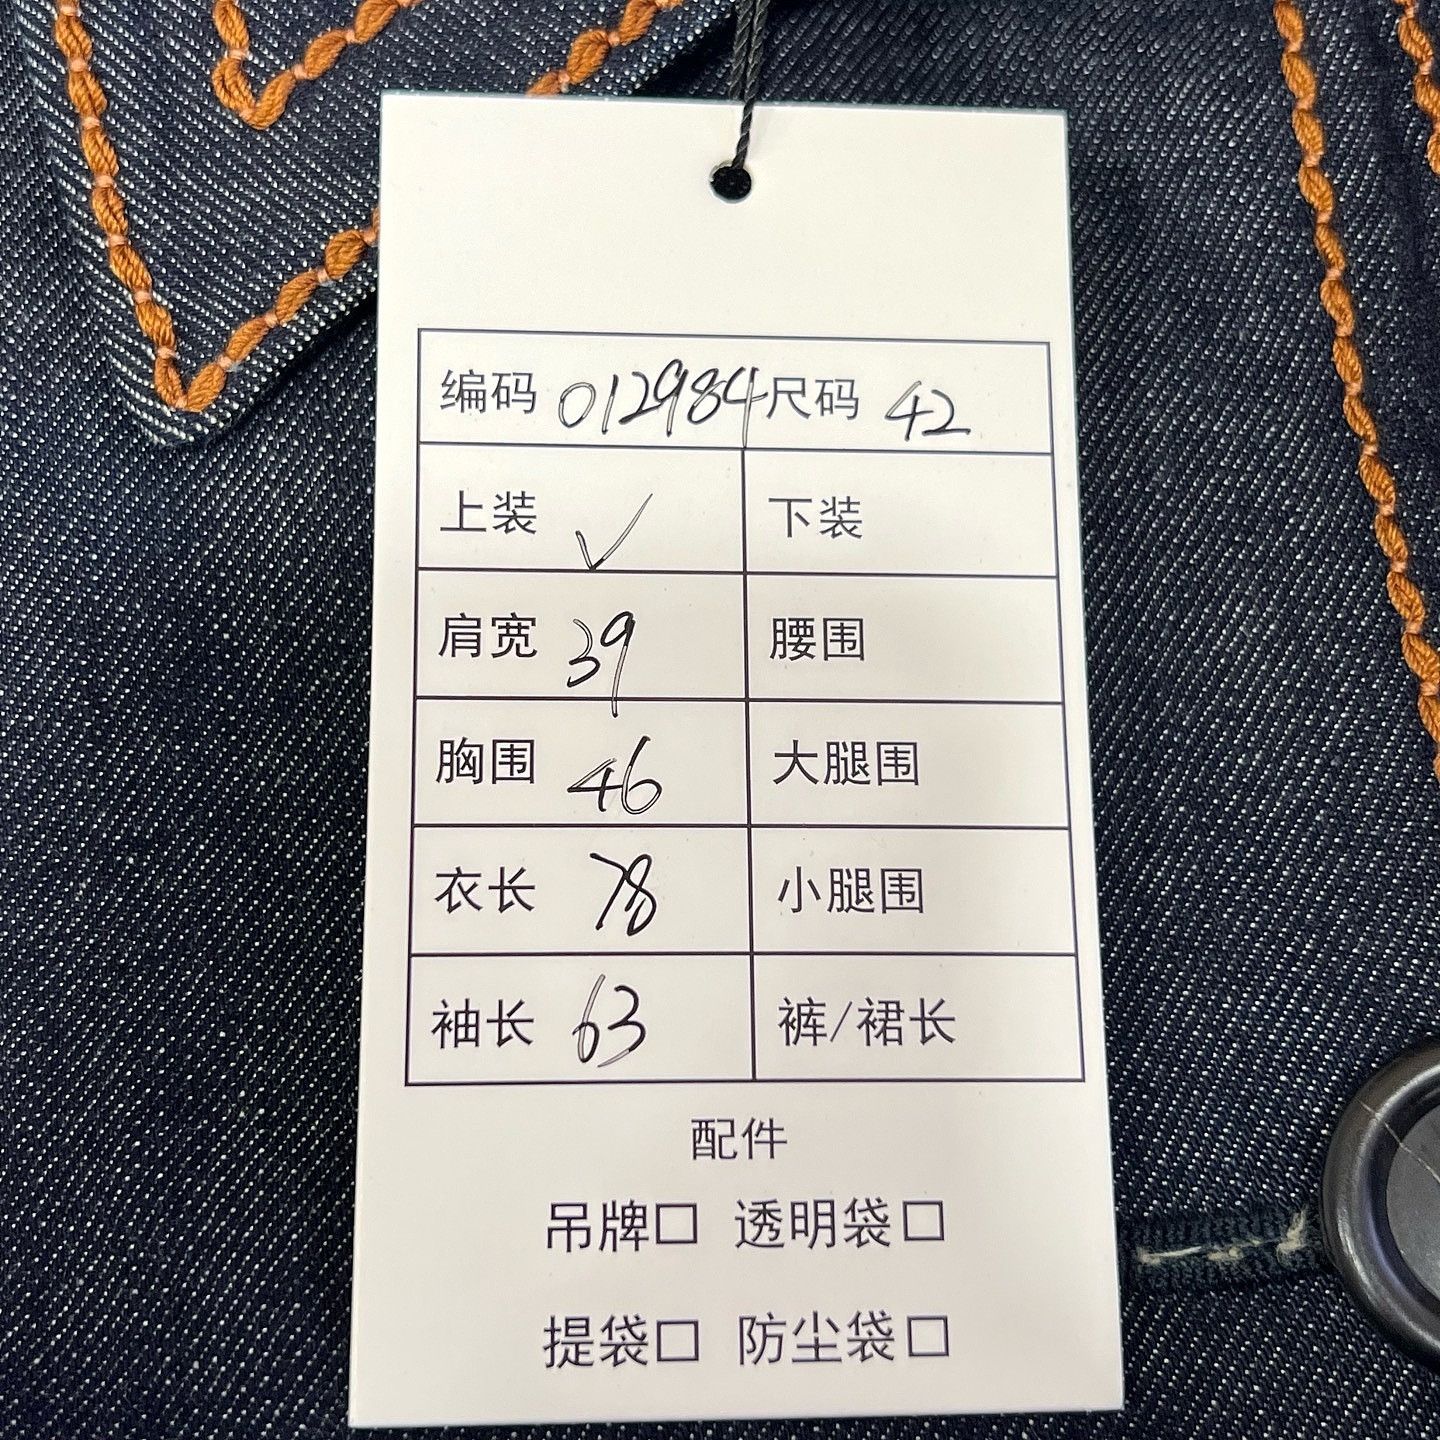 编码 012984 尺码 42
上装 ✓ 下装
肩宽 39 腰围
胸围 46 大腿围
衣长 78 小腿围
袖长 63 裤/裙长
配件
吊牌□ 透明袋□
提袋□ 防尘袋□